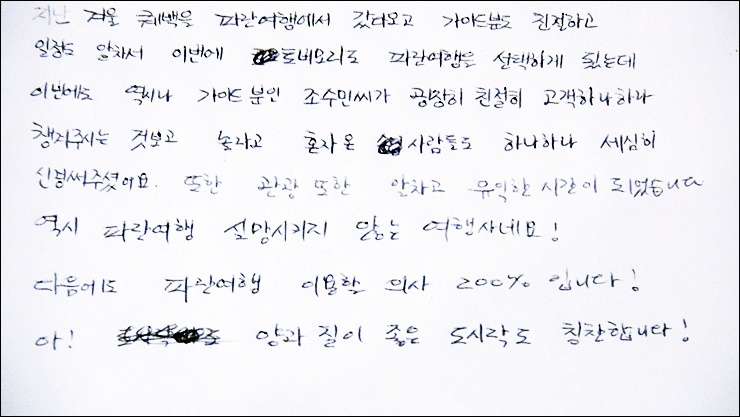 지난 겨울 퀘백을 파란여행에서 갔다오고 가이드분도 친절하고
일정도 알차서 이번에 토버모리도 파란여행을 선택하게 됬는데
이번에도 역시나 가이드 분인 조수민씨가 굉장히 친절히 고객하나하나
챙겨주시는 것보고 놀라고 혼자온 사람들도 하나하나 세심히
신경써주셨어요. 또한 관광 또한 알차고 유익한 시간이 되었습니다
역시 파란여행 실망시키지 않는 여행사네요!
다음에도 파란여행 이용할 의사 200% 입니다!
아! 양과 질이 좋은 도시락도 칭찬합니다!